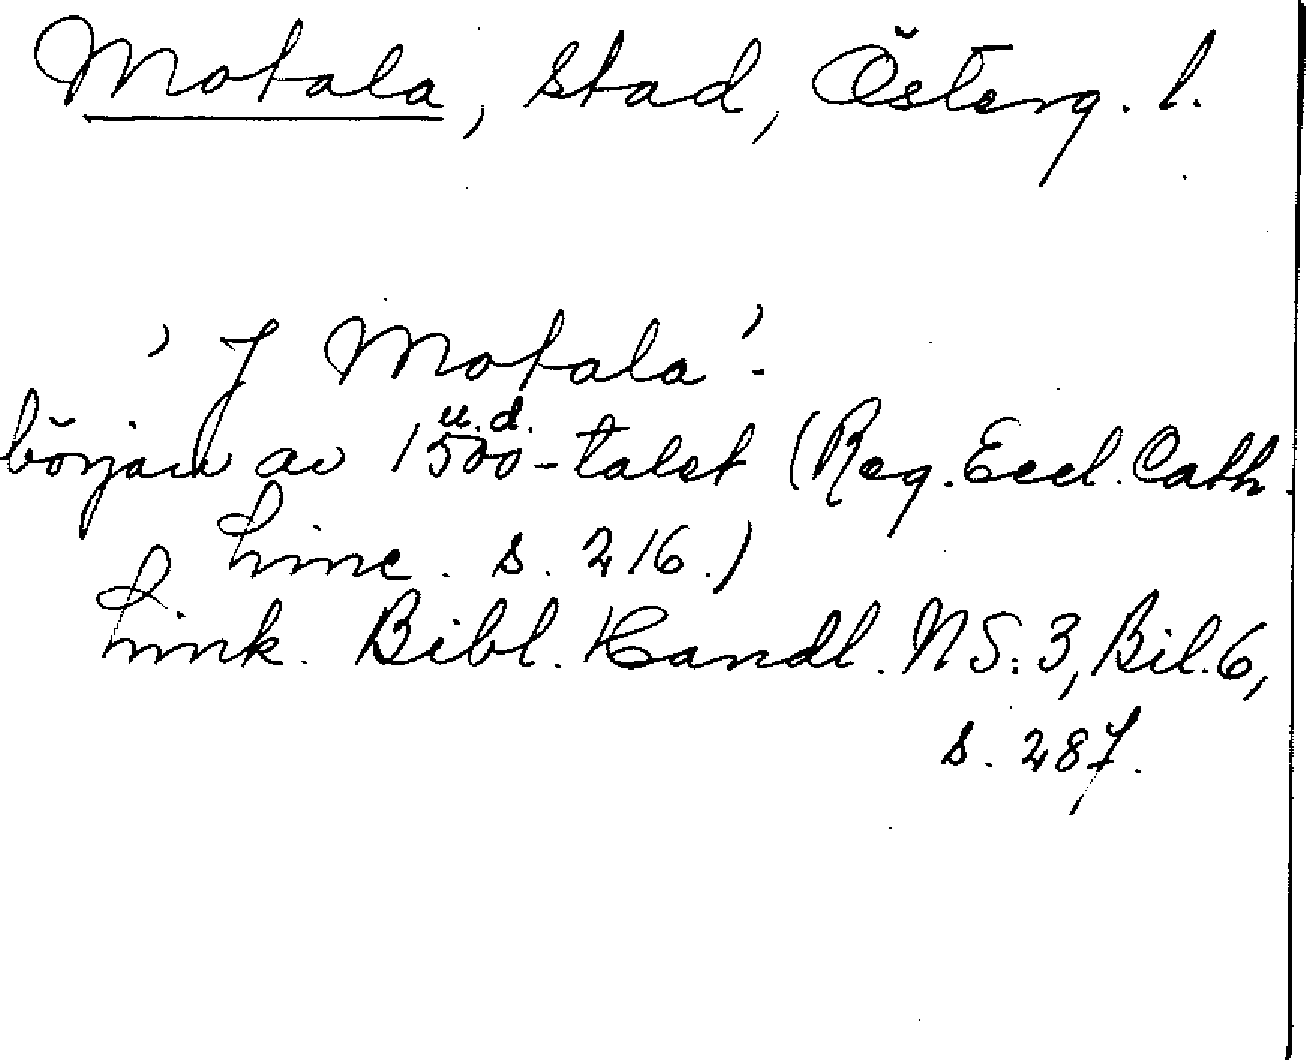 Motala, stad, Österg. l.
' J Motala'.
u. d.
början av 1500-talet (Reg. Eccl. Cath.
Linc. s. 216.)
Link. Bibl. Handl. NS: 3, Bil. 6,
s. 287.